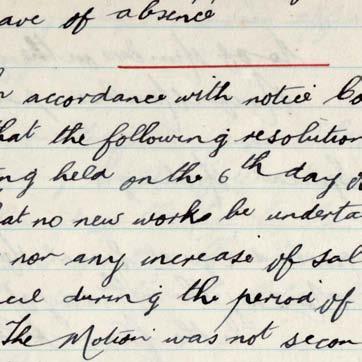 ave of absence
accordance with notice Co
hat the following resolution
ng held on the 6th day o
hat no new works be underta
nor any increase of sal
cil during the period of
The Motion was not secon